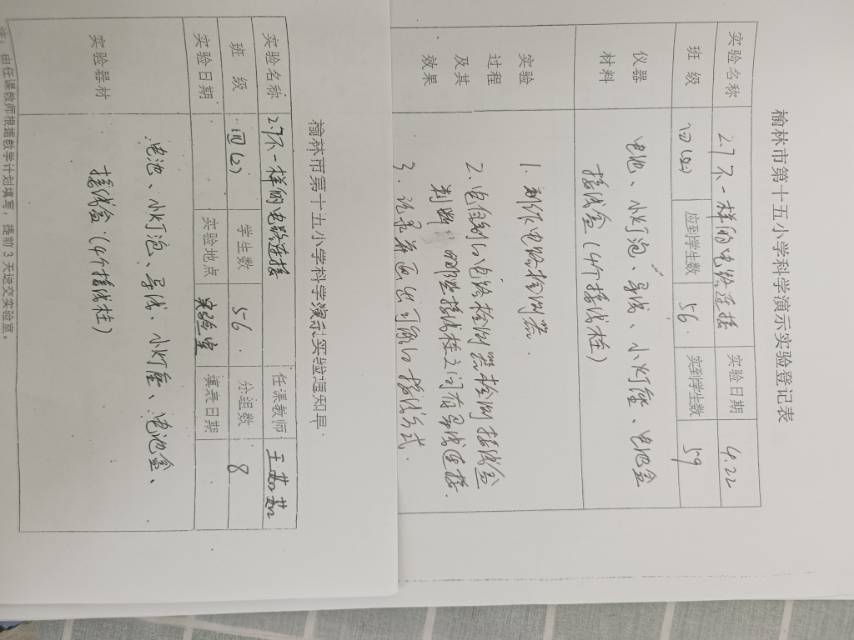 榆林市第十五小学科学演示实验登记表
实验名称 2.7不一样的电路连接 实验日期 4.22
班 级 四(2) 应到学生数 56 实到学生数 59
仪器 材料 电池、小灯泡、导线、小灯座、电池盒
接线盒(4个接线柱)
实验 过程 及其 效果
1. 制作电路检测器.
2. 用制的电路检测器检测接线盒
判断 哪些接线柱之间有导线连接.
3. 记录并画出可能的接线方式.
榆林市第十五小学科学演示实验通知单
实验名称 2.7不一样的电路连接 任课教师 王茹茹
班 级 四(2) 学生数 56. 分组数 8
实验日期 实验地点 实验室 填表日期
实验器材 电池、小灯泡、导线、小灯座、电池盒、
接线盒(4个接线柱)
由任课教师根据教学计划填写,提前3天送交实验室。